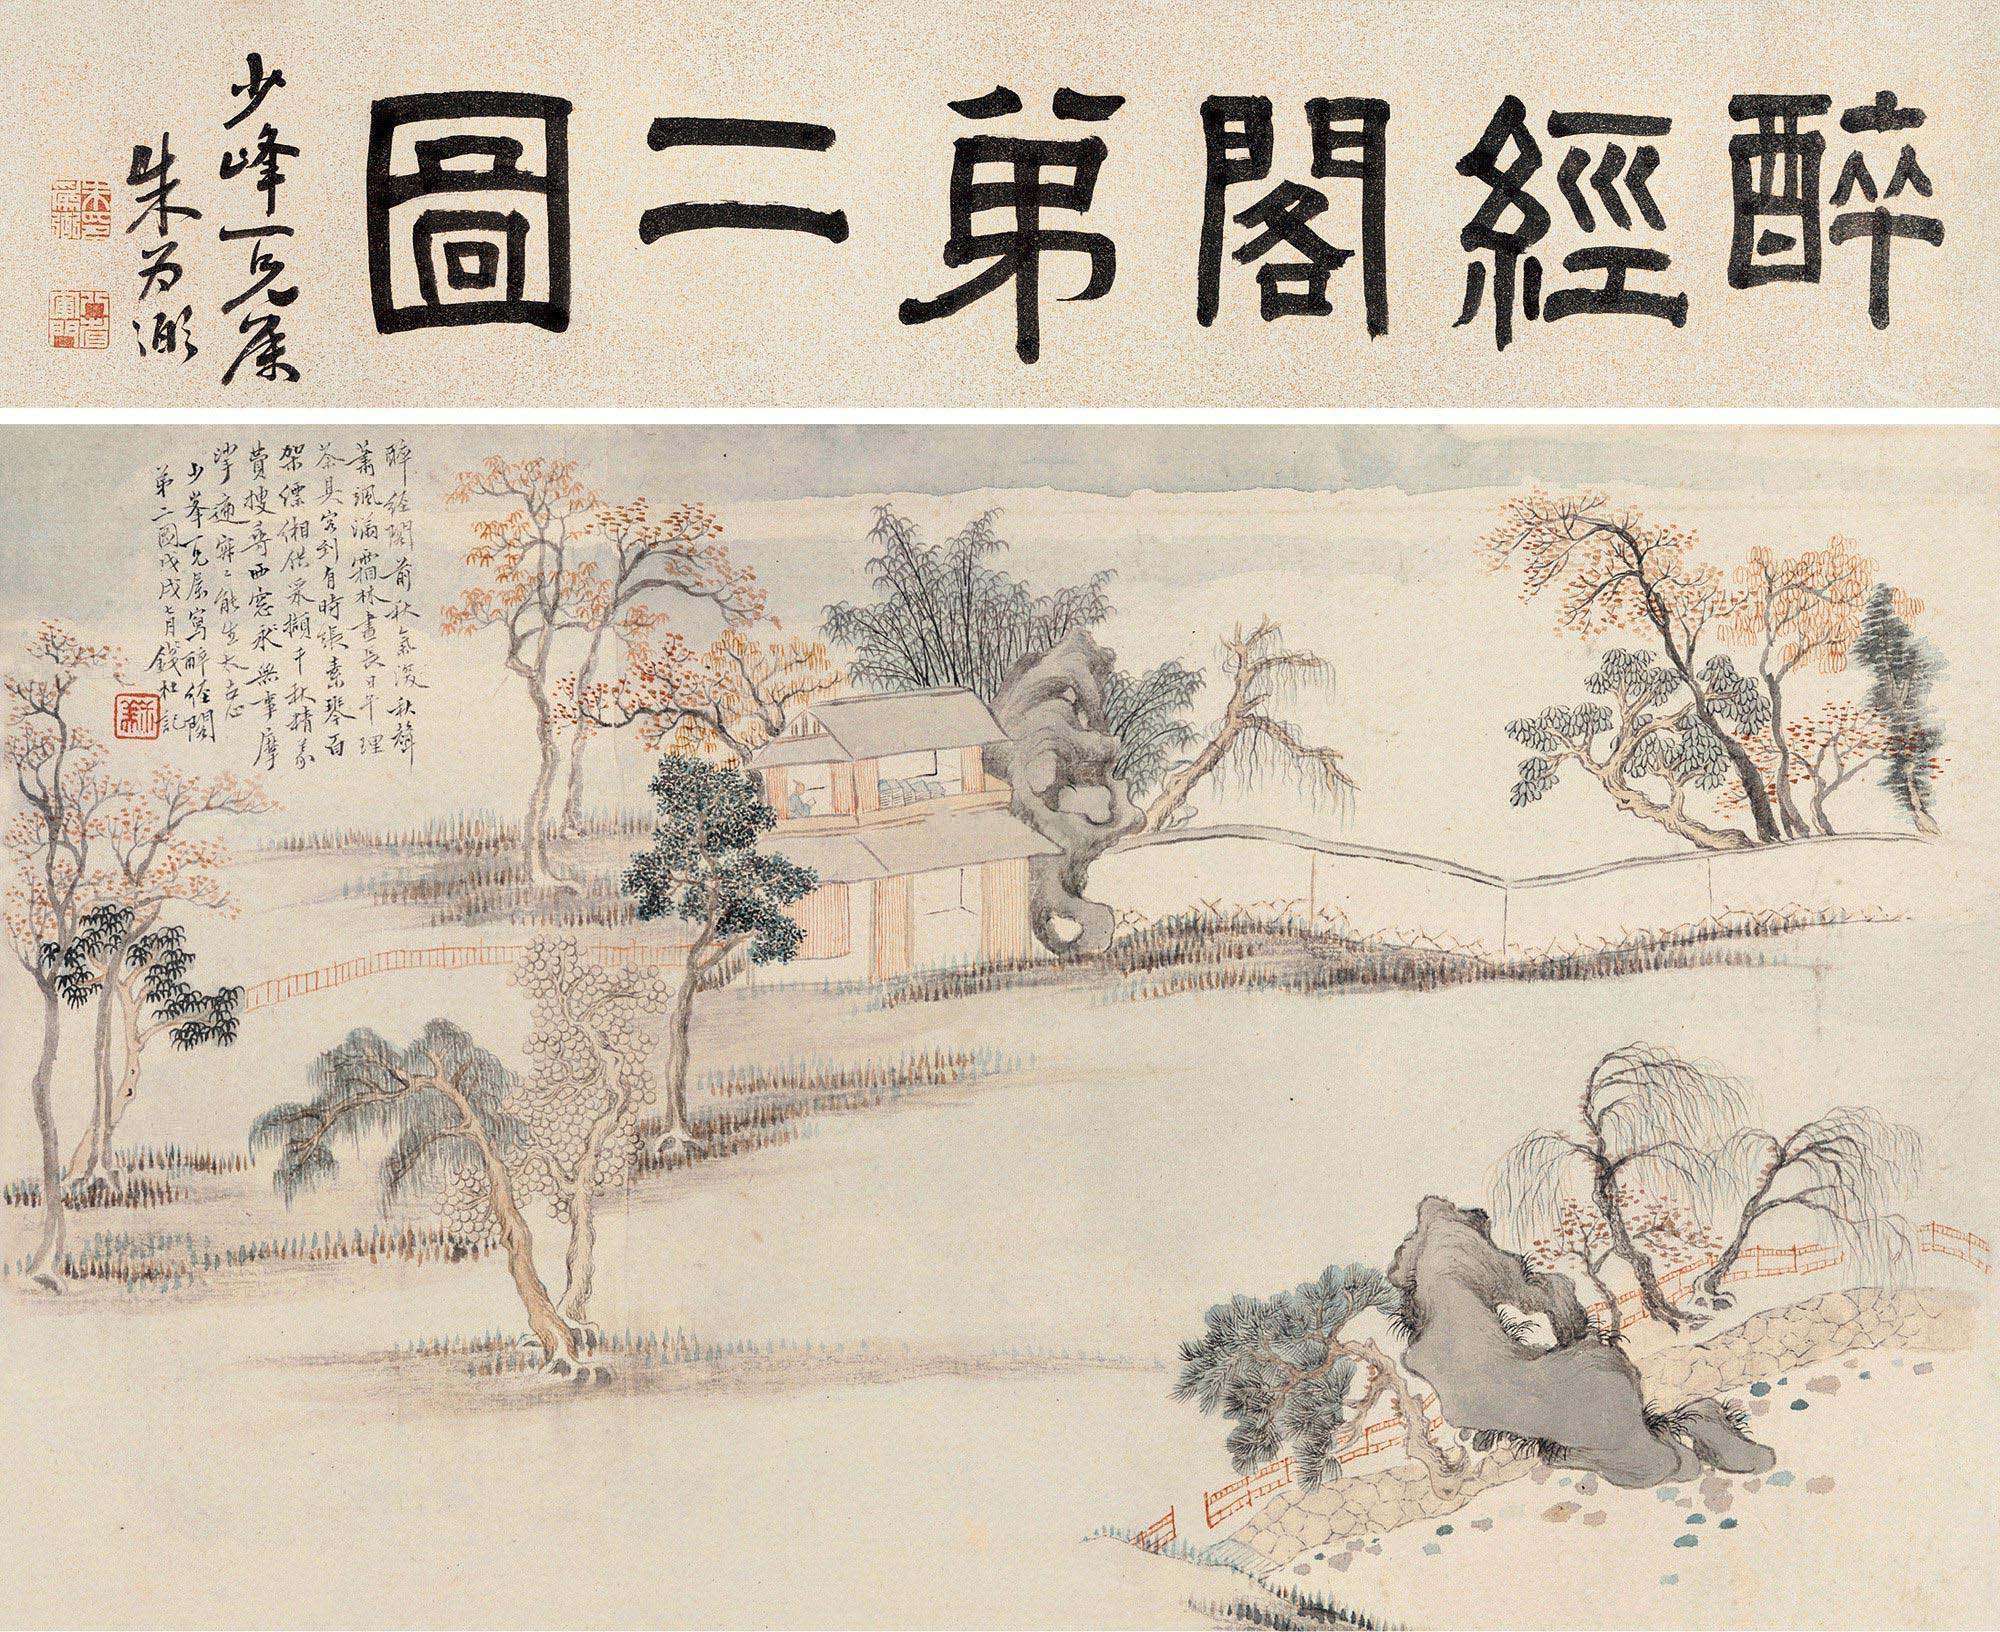 醉經閣弟二圖
少峰一兄屬
朱為弼
醉經閣前秋氣深秋聲
蕭颯滿霜林晝長日午理
茶具客到有時張素琴百
架縹緗供采擷千秋精義
費搜尋西窓無事摩
挲遍能生太古心
少峯一兄屬寫醉經閣
弟二圖戊戌七月錢杜記